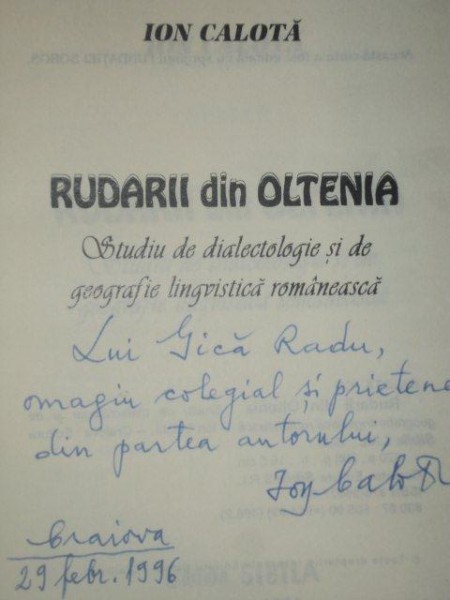 ION CALOTĂ
RUDARII din OLTENIA
Studiu de dialectologie și de
geografie lingvistică românească
Lui Gică Radu,
omagiu colegial și prietene
din partea autorului,
Ion Calotă
Craiova
29 febr. 1996